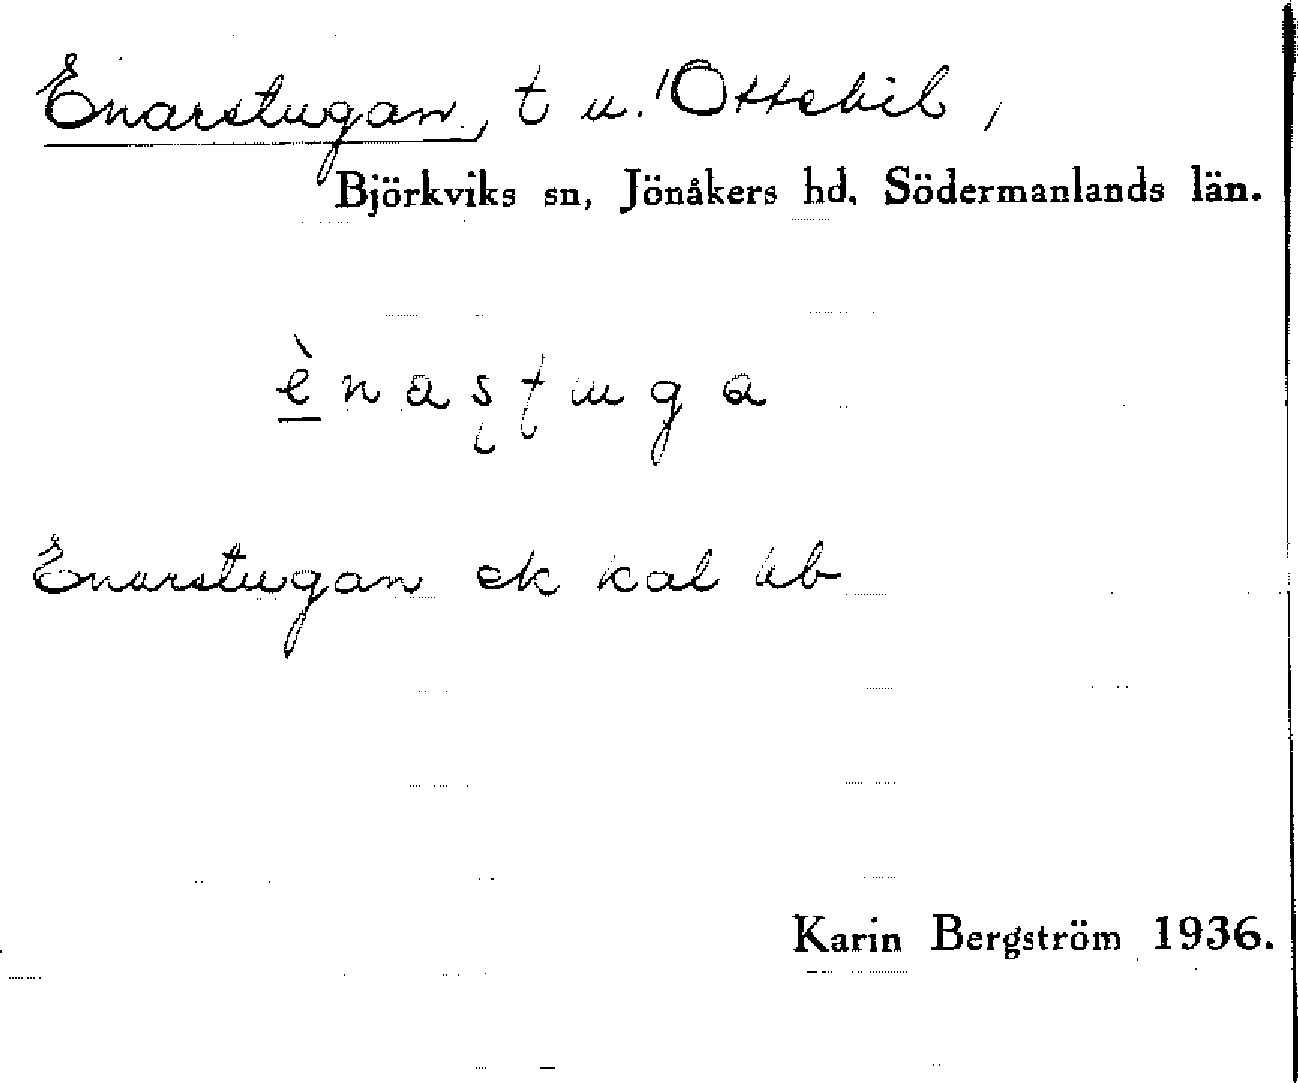 Enarstugan, t u. Ottekil,
Björkviks sn, Jönåkers hd, Södermanlands län.
è n a s t u g a
Enarstugan ek kal bb
Karin Bergström 1936.